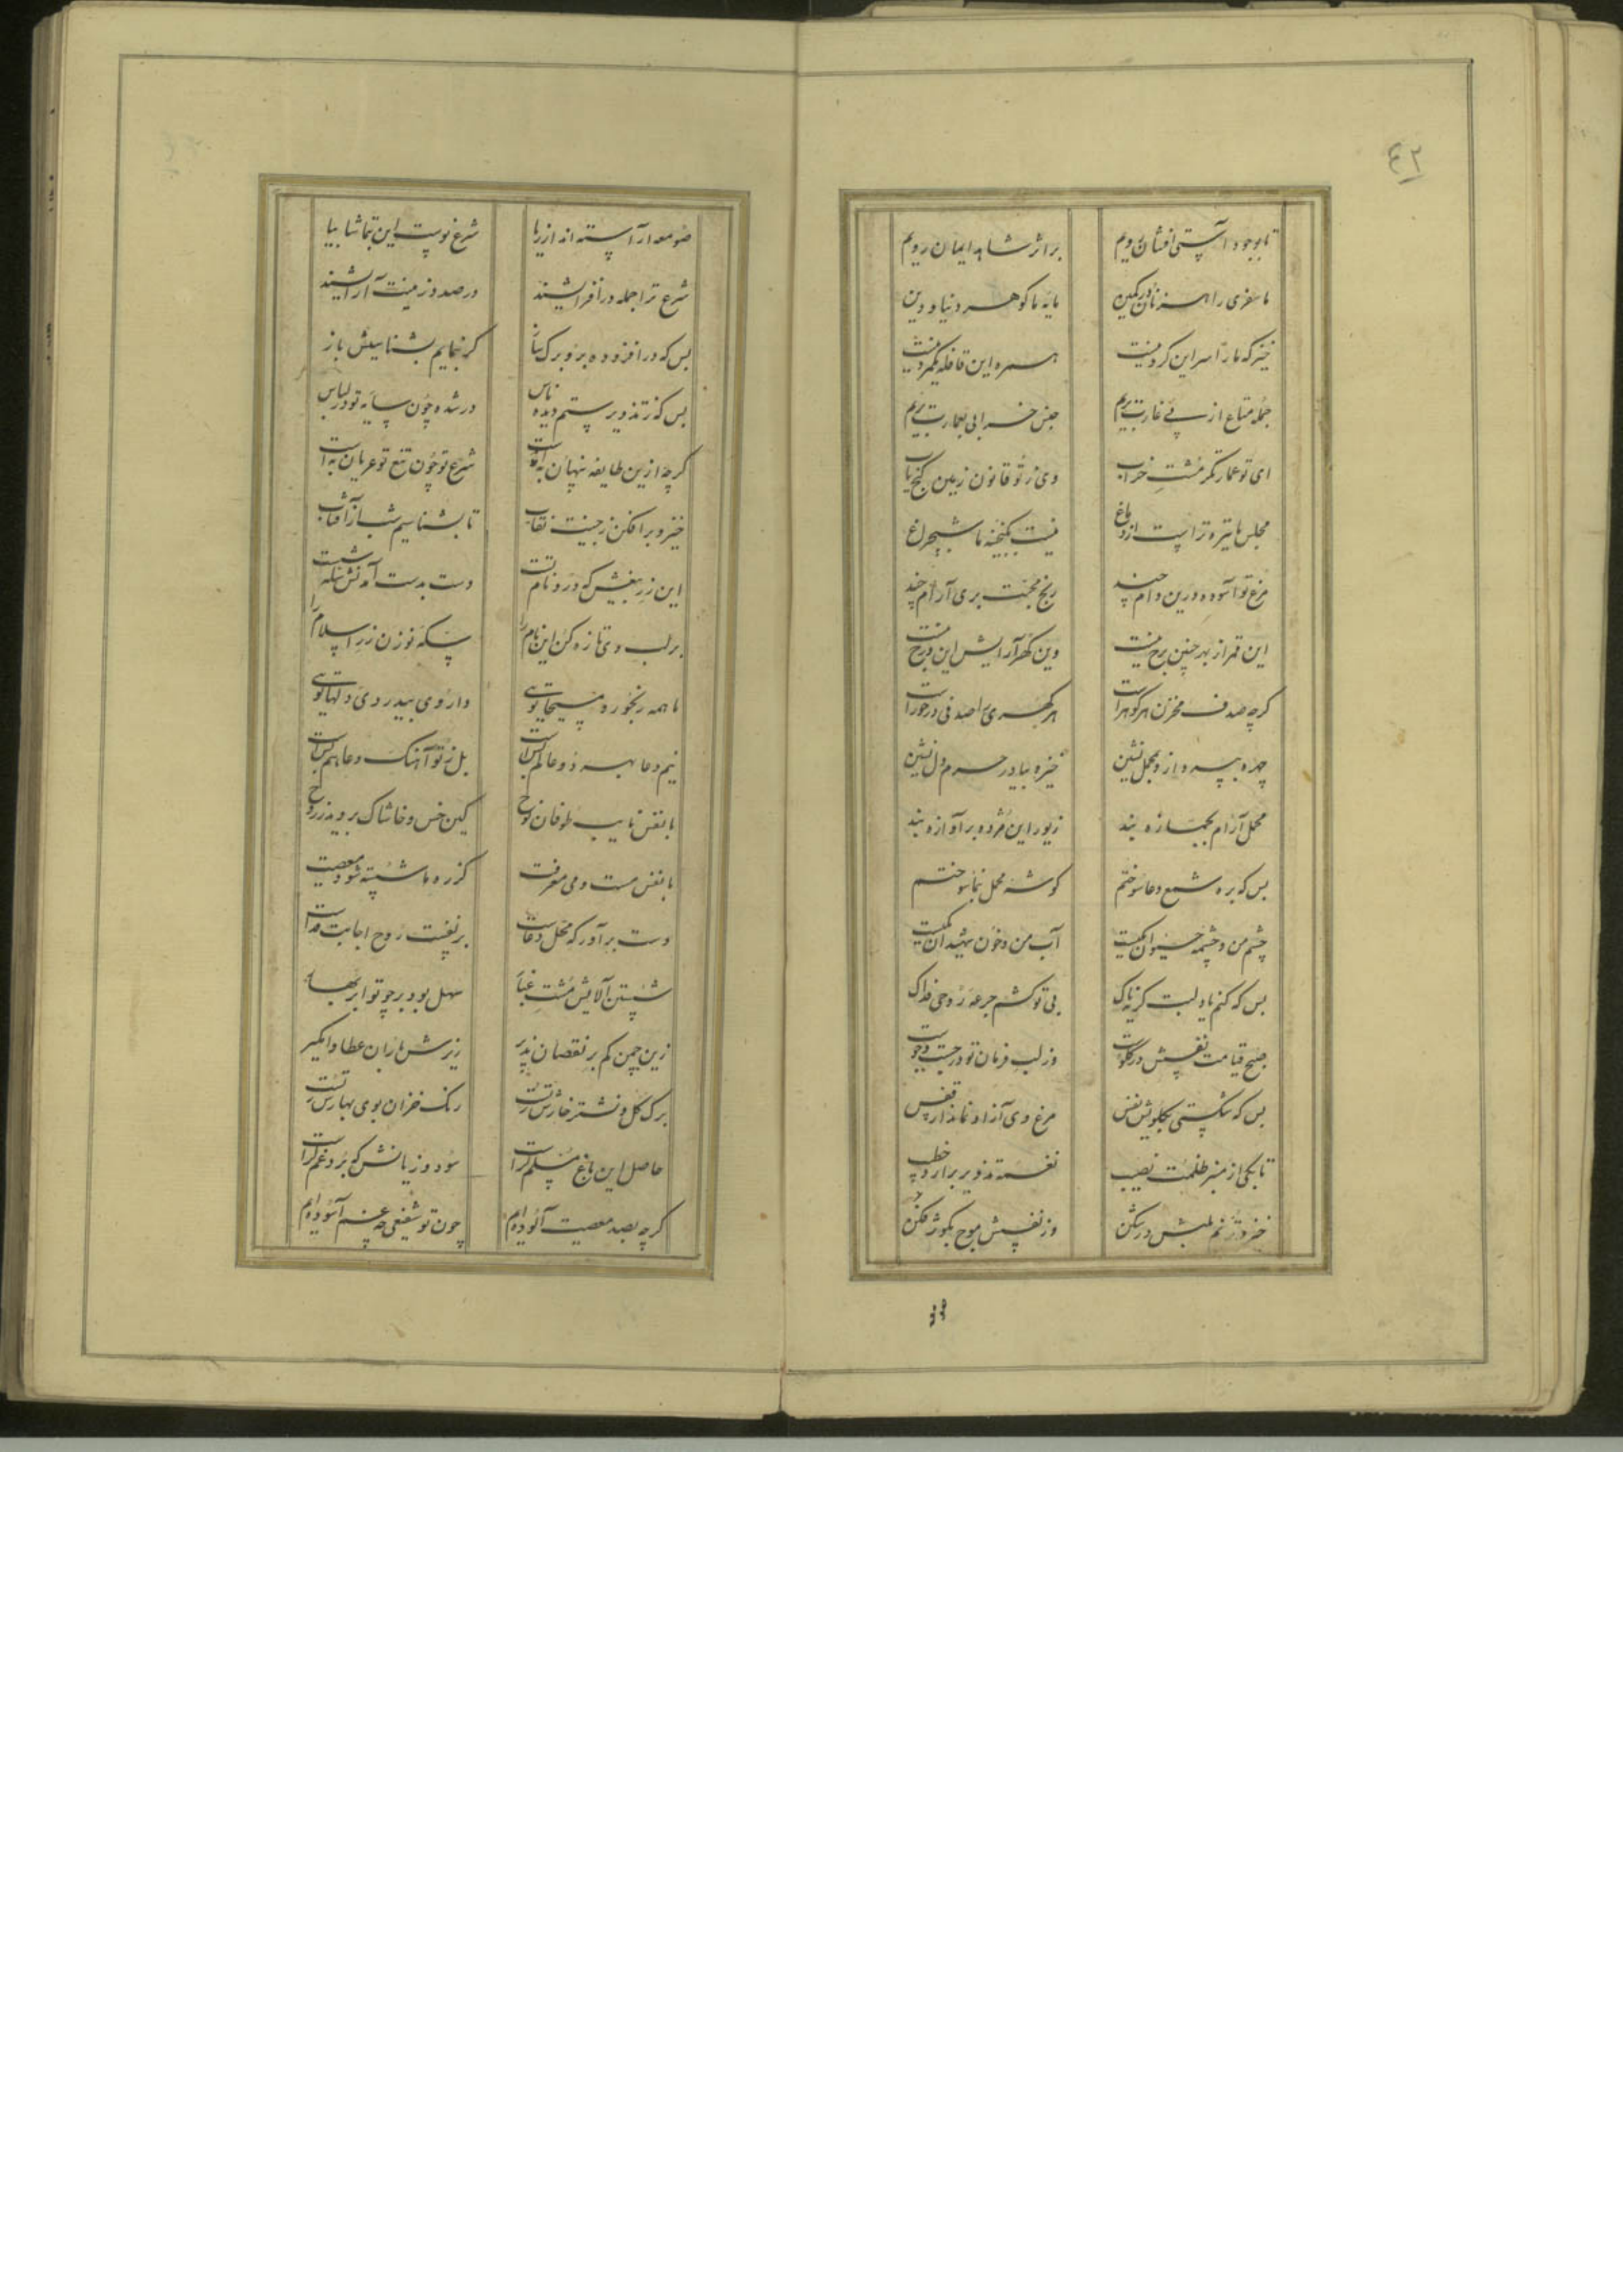 ٤٢
تا بوجود آستی افشان رویم بر اثر شاهد ایمان رویم
ما سفری راهزنان در کمین مایه ما گوهر دنیا و دین
خیز که ما را سر این گرد نیست همره این قافله یکمرد نیست
جمله متاع از پی غارت بریم جنس خرابی بعمارت بریم
ای تو عمارتگر مشت خراب وی ز تو قانون زمین گنج یاب
مجلس ما تیره تر است از دماغ نیست بگنجینه ما شبچراغ
مرغ تو آسوده درین دام چند رنج محبت بری آرام چند
این قمر از بهر چنین برج نیست وین گهر آرایش این درج نیست
گرچه صدف مخزن هر گوهر است هر گهری را صدفی درخور است
چهره بپرداز و بمحمل نشین خیز و بیا در حرم دل نشین
محمل آرام بجمازه بند زیور این مژده بر آوازه بند
بس که بره شمع دعا سوختم گوشه محمل بنما سوختم
چشم من و چشمه حیوان یکیست آب من و خون شهیدان یکیست
بس که کنم یاد لبت گریه ناک بی تو کشم جرعه روحی فداک
صبح قیامت نفسش در گلوست وز لب فرمان تو در جست و جوست
بس که شکستی بگلویش نفس مرغ وی آزاد نماند از قفس
تا بکی از منبر ظلمت نصیب نغمه تذویر برآرد خطیب
خیز و ز نم بلبلش در شکن وز نفسش موج بکوثر فکن
صومعه آراسته اند از ریا شرع نو است این بتماشا بیا
شرع ترا جمله در افزایشند در صدد زینت و آرایشند
بس که در افزوده بر و برگ و ساز گر بنمایم نشناسیش باز
بس که ز تذویر ستم دیده ناس در شده چون سایه تو در لباس
گرچه ازین طایفه پنهان به است شرع تو چون تیغ تو عریان به است
خیز و برافکن ز جبینت نقاب تا بشناسیم شب از آفتاب
این زر بیغش که درو نام تست دست بدست آمد و نقشش نشست
بر لب وی تازه کن این نام را سکه نو زن زر اسلام را
ما همه رنجور و مسیحا توئی داروی بیدردی دلها توئی
نیم دعا بهر دو عالم بس است بل ز تو آهنگ دعا هم بس است
با نفس نایب طوفان نوح کین خس و خاشاک بروبد ز روح
با نفس مست و می معرفت کز ره ما شسته شود معصیت
دست برآور که محل دعاست بر نفست روح اجابت فداست
شستن آلایش مشت غبار سهل بود بر چو تو ابر بهار
زین چمن کم بر نقصان پذیر ریزش باران عطا وامگیر
برگ گل و نشتر خارش ز تست رنگ خزان بوی بهارش ز تست
حاصل این باغ مسلم تراست سود و زیانش که برد غم تراست
گرچه بصد معصیت آلوده ایم چون تو شفیعی چه غم آسوده ایم